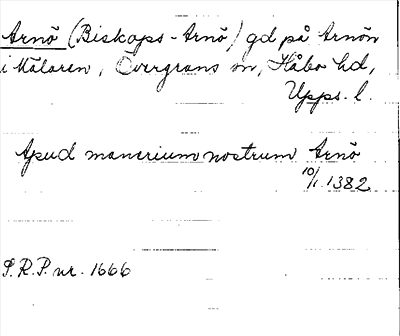 Arnö (Biskops-Arnö) gd på Arnön
i Mälaren, Övergrans sn, Håbo hd,
Upps. l.
Apud manerium nostrum Arnö
10/1 1382
S.R.P. nr. 1666